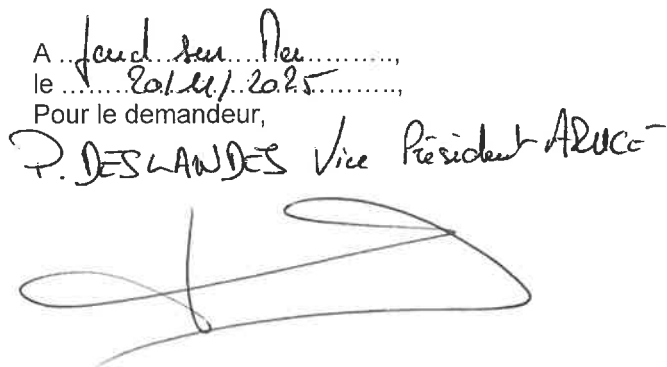 A Jard sur Mer,
le 20/11/2025,
Pour le demandeur,
P. DESLANDES Vice Président